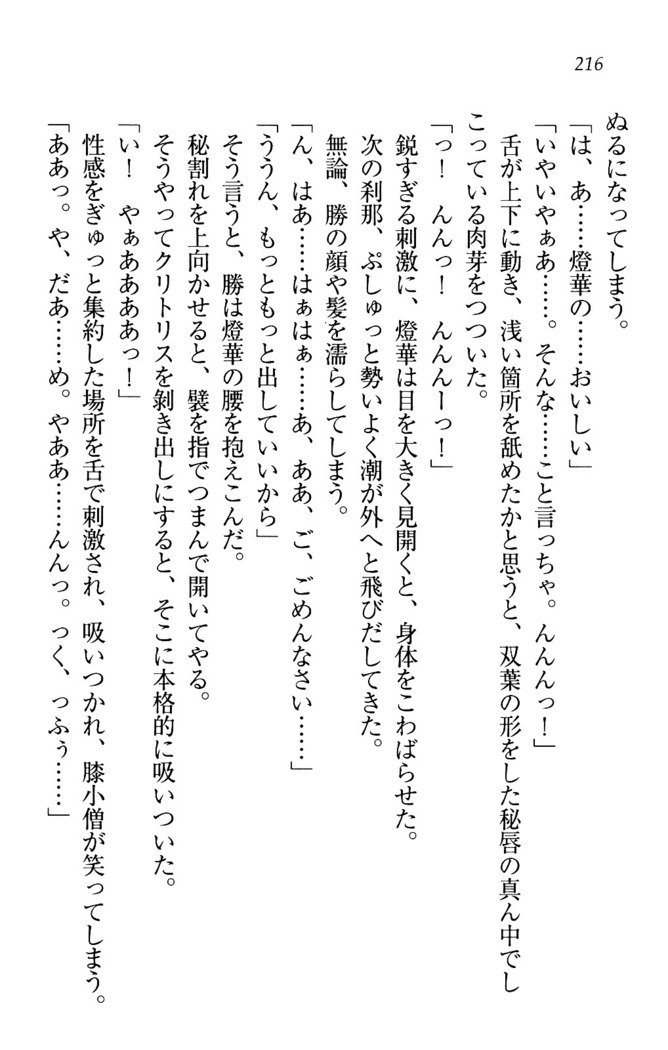 216
ぬるになってしまう。
「は、あ……燈華の……おいしい」
「いやいやぁあ……。そんな……こと言っちゃ。んんんっ！」
　舌が上下に動き、浅い箇所を舐めたかと思うと、双葉の形をした秘唇の真ん中でし
こっている肉芽をつついた。
「っ！　んんっ！　んんんーっ！」
　鋭すぎる刺激に、燈華は目を大きく見開くと、身体をこわばらせた。
　次の刹那、ぷしゅっと勢いよく潮が外へと飛びだしてきた。
　無論、勝の顔や髪を濡らしてしまう。
「ん、はあ……はぁはぁ……あ、ああ、ご、ごめんなさい……」
「ううん、もっともっと出していいから」
　そう言うと、勝は燈華の腰を抱えこんだ。
　秘割れを上向かせると、襞を指でつまんで開いてやる。
　そうやってクリトリスを剝き出しにすると、そこに本格的に吸いついた。
「い！　やぁああああっ！」
　性感をぎゅっと集約した場所を舌で刺激され、吸いつかれ、膝小僧が笑ってしまう。
「ああっ。や、だあ……め。やああ……んんっ。っく、っふぅ……」